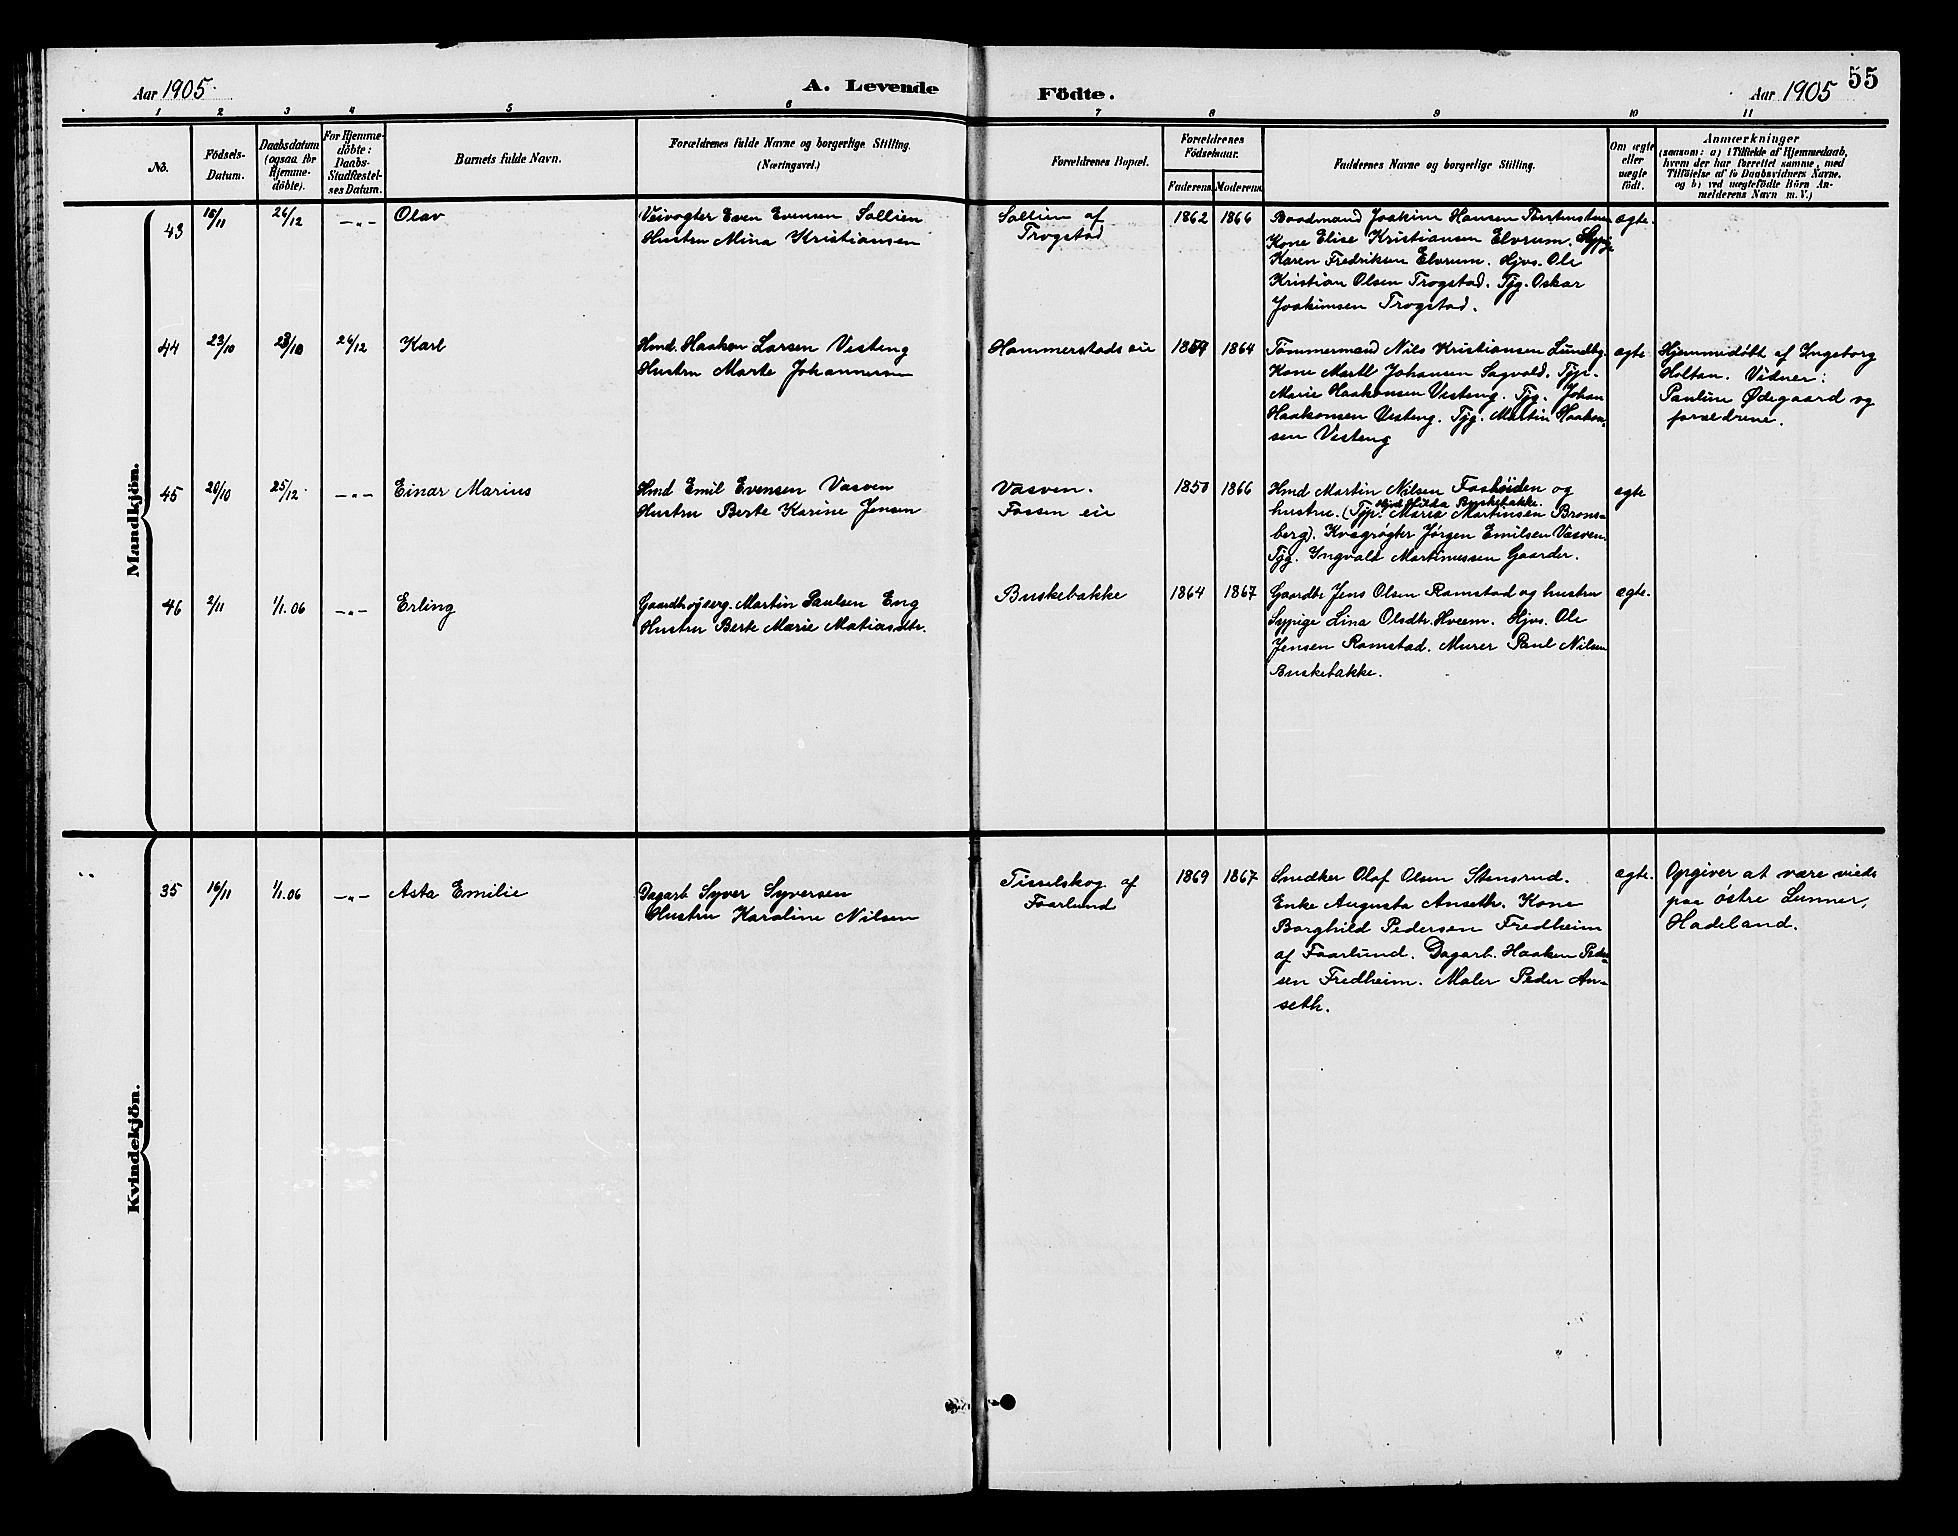 Aar 1905. A. Levende Födte. Aar 1905 55
1 2 3 4 5 6 7 8 9 10 11
No.
Födsels-
Datum.
Daabsdatum
(ogsaa for
Hjemme-
döbte).
For Hjemme-
döbte:
Daabs-
Stadfæstel-
ses Datum.
Barnets fulde Navn.
Forældrenes fulde Navne og borgerlige Stilling.
(Næringsvei.)
Forældrenes Bopæl.
Forældrenes
Födselsaar.
Faderens. Moderens.
Faddernes Navne og borgerlige Stilling.
Om ægte
eller
uægte
födt.
Anmærkninger
(saasom: a) i Tilfælde af Hjemmedaab,
hvem der har forrettet samme, med
Tilföielse af to Daabsvidners Navne,
og b) ved uægtefödte Börn An-
melderens Navn m. V.)
Mandkjön.
43 15/11 26/12 -"- Olav
Veivogter Even Evensen Sollien
Hustru Mina Kristiansen
Sollien af
Trogstad
1862 1866
Baadmand Joakim Hansen
Kone Elise Kristiansen Elvrum. Sypige
Karen Fredriksen Elvrum. Hjvs. Ole
Kristian Olsen Trogstad. Tjg. Oskar
Joakimsen Trogstad.
ægte.
44 23/10 23/10 26/12 Karl
Hmd. Haakon Larsen Vesteng
Hustru Marte Johannesen
Hammerstads eie
1859 1864
Tømmermand Nils Kristiansen Lundby.
Kone Martl Johansen Sagvold. Tjp.
Marie Haakonsen Vesteng. Tjg. Johan
Haakonsen Vesteng. Tjg. Martin Haakon-
sen Vesteng
ægte
Hjemmedøbt af Ingeborg
Holtan. Vidner:
Pauline Ødegaard og
forældrene.
45 20/10 25/12. -"- Einar Marius
Hmd Emil Evensen Vasven
Hustru Berte Karine Jensen
Vasven.
Fossen eie
1850 1866
Hmd Martin Nilsen Foshøiden og
hustru. (Tjp. Maria Martinsen Brons-
Hilda Buskebakke.
berg). Kvægrøgter Jørgen Emilsen Vasven.
Tjg. Ingvald Martinussen Gaarder.
ægte
46 2/11 1/1.06 -"- Erling
Gaardhøiserg. Martin Paulsen Eng
Hustru Berte Marie Matiasdtr.
Buskebakke
1864 1867
Gaardbr Jens Olsen Ramstad og hustru
Sypige Lina Olsdtr. Hveem. Hjvs. Ole
Jensen Ramstad. Murer Paul Nilsen
Buskebakke.
ægte.
Kvindekjön.
35 16/11 1/1.06 -"- Asta Emilie
Dagarb Syver Syversen
Hustru Karoline Nilsen
Tisselskog af
Faarlund
1869 1867
Snedker Olaf Olsen Stensrud.
Enke Augusta Anseth. Kone
Borghild Pedersen Fredheim
af Faarlund. Dagarb. Haaken Peder-
sen Fredheim. Maler Peder An-
seth.
ægte.
Opgiver at være viede
paa østre Lunner,
Hadeland.